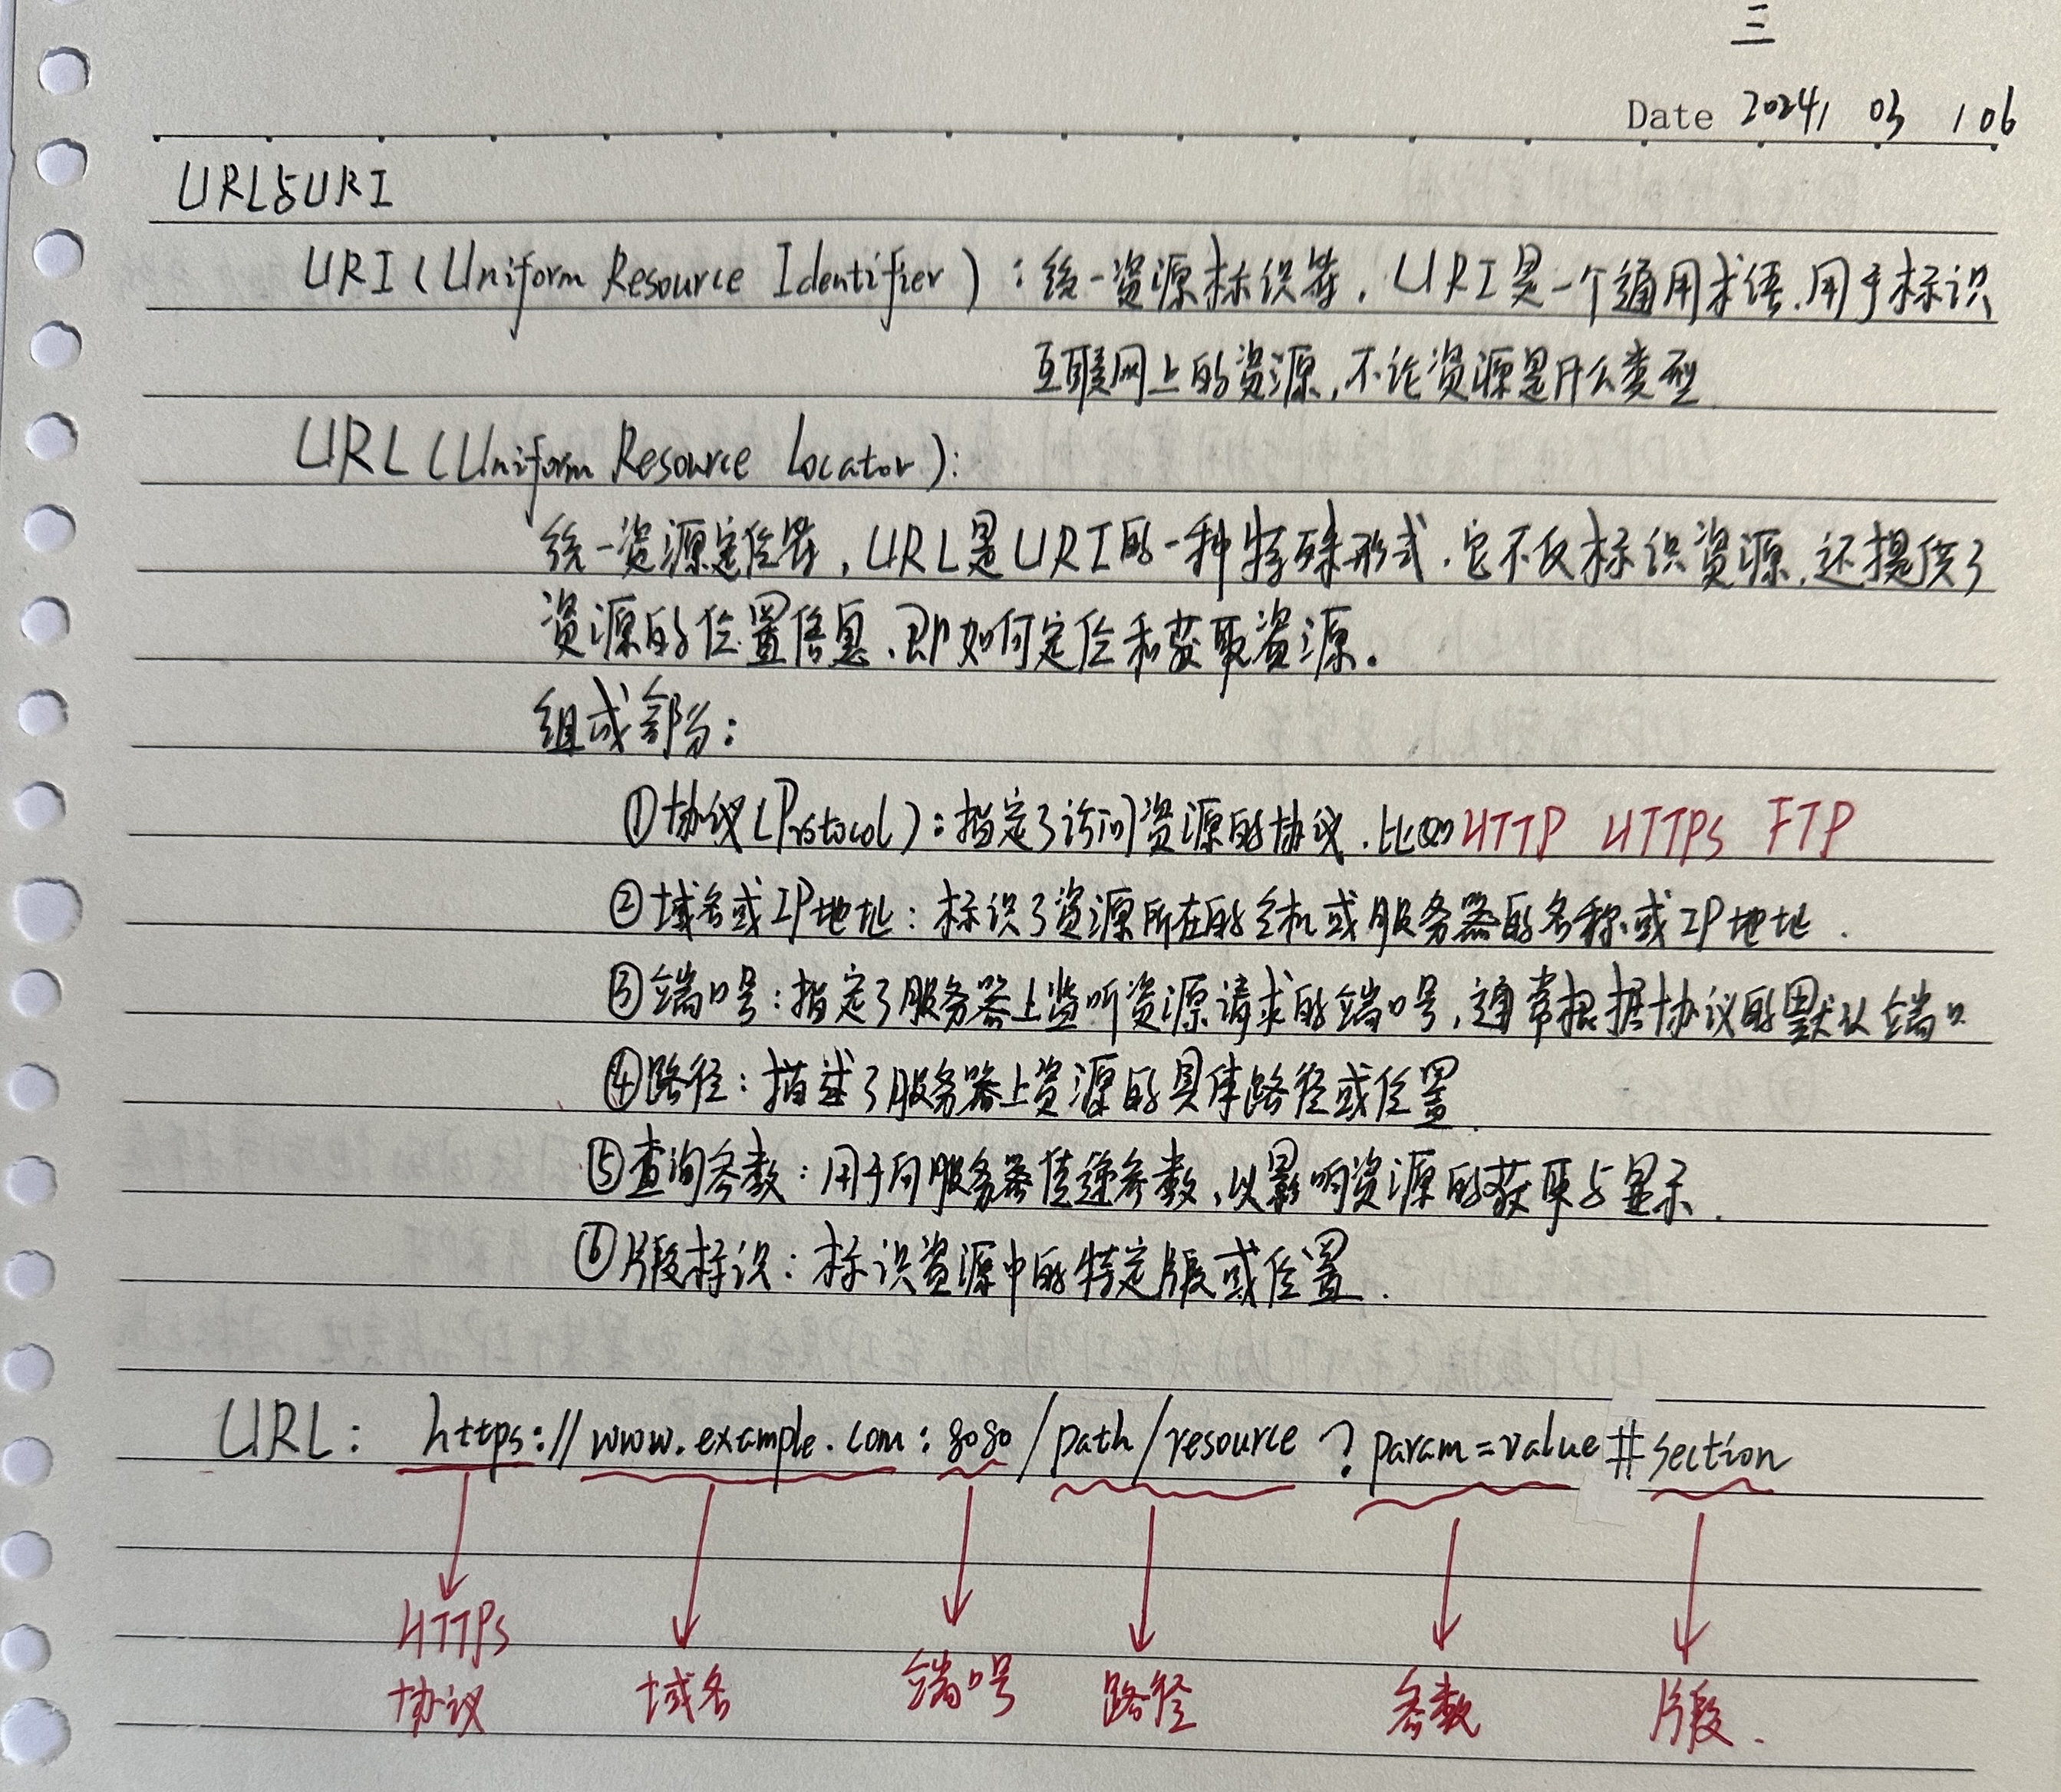 三
Date 2024/ 03 /06
URL与URI
URI(Uniform Resource Identifier):统一资源标识符,URI是一个通用术语,用于标识
互联网上的资源,不论资源是什么类型
URL(Uniform Resource Locator):
统一资源定位符,URL是URI的一种特殊形式,它不仅标识资源,还提供了
资源的位置信息,即如何定位和获取资源。
组成部分:
①协议(Protocol):指定了访问资源的协议,比如HTTP HTTPS FTP
②域名或IP地址:标识了资源所在的主机或服务器的名称或IP地址.
③端口号:指定了服务器上监听资源请求的端口号,通常根据协议的默认端口
④路径:描述了服务器上资源的具体路径或位置.
⑤查询参数:用于向服务器传递参数,以影响资源的获取与显示.
⑥片段标识:标识资源中的特定片段或位置.
URL: https://www.example.com:8080/path/resource?param=value#section
HTTPS 协议 域名 端口号 路径 参数 片段.